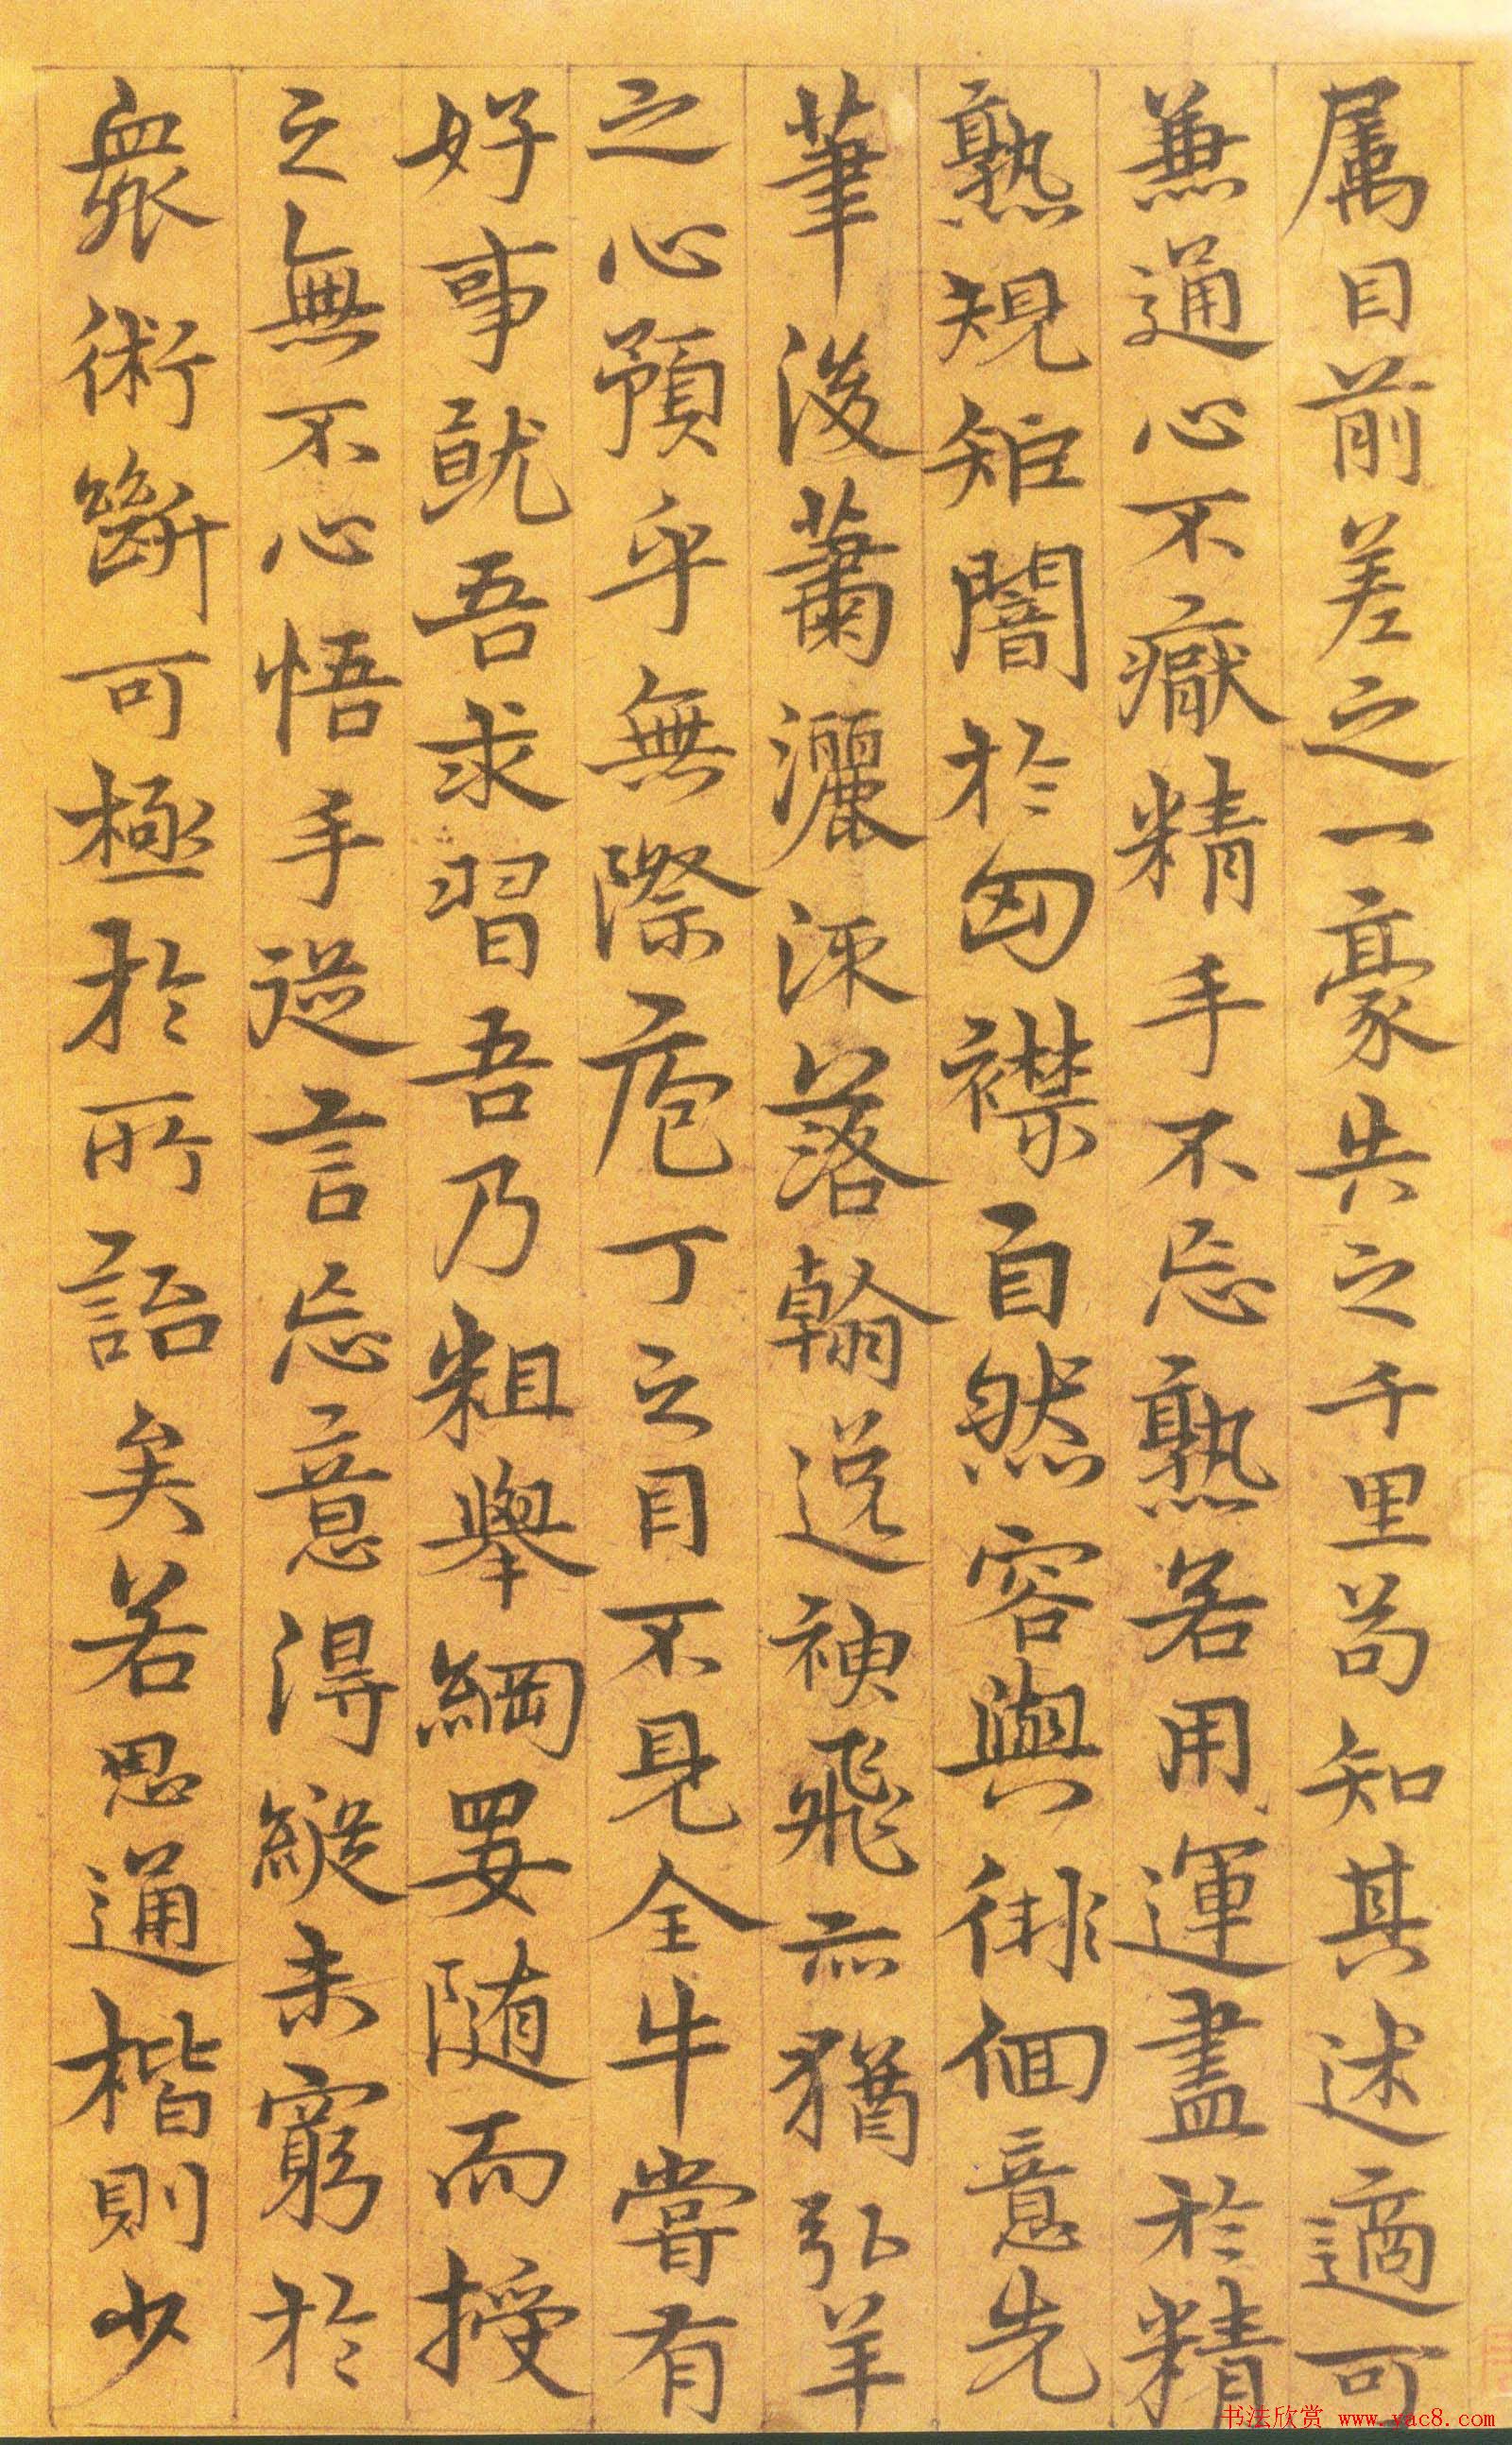 属目前差之一豪失之千里苟知其述適可
兼通心不癡精手不忘熟若用運盡於精
熟規矩闇於匈襟自然容與徘徊意先
筆後蕭灑流落翰逸神飛亦猶弘羊
之心預乎無際庖丁之目不見全牛嘗有
好事就吾求習吾乃粗舉綱要随而授
之無不心悟手從言忘意得縱未窮於
眾術斷可極於所詣矣若思通楷則少
书法欣赏 www.yac8.com